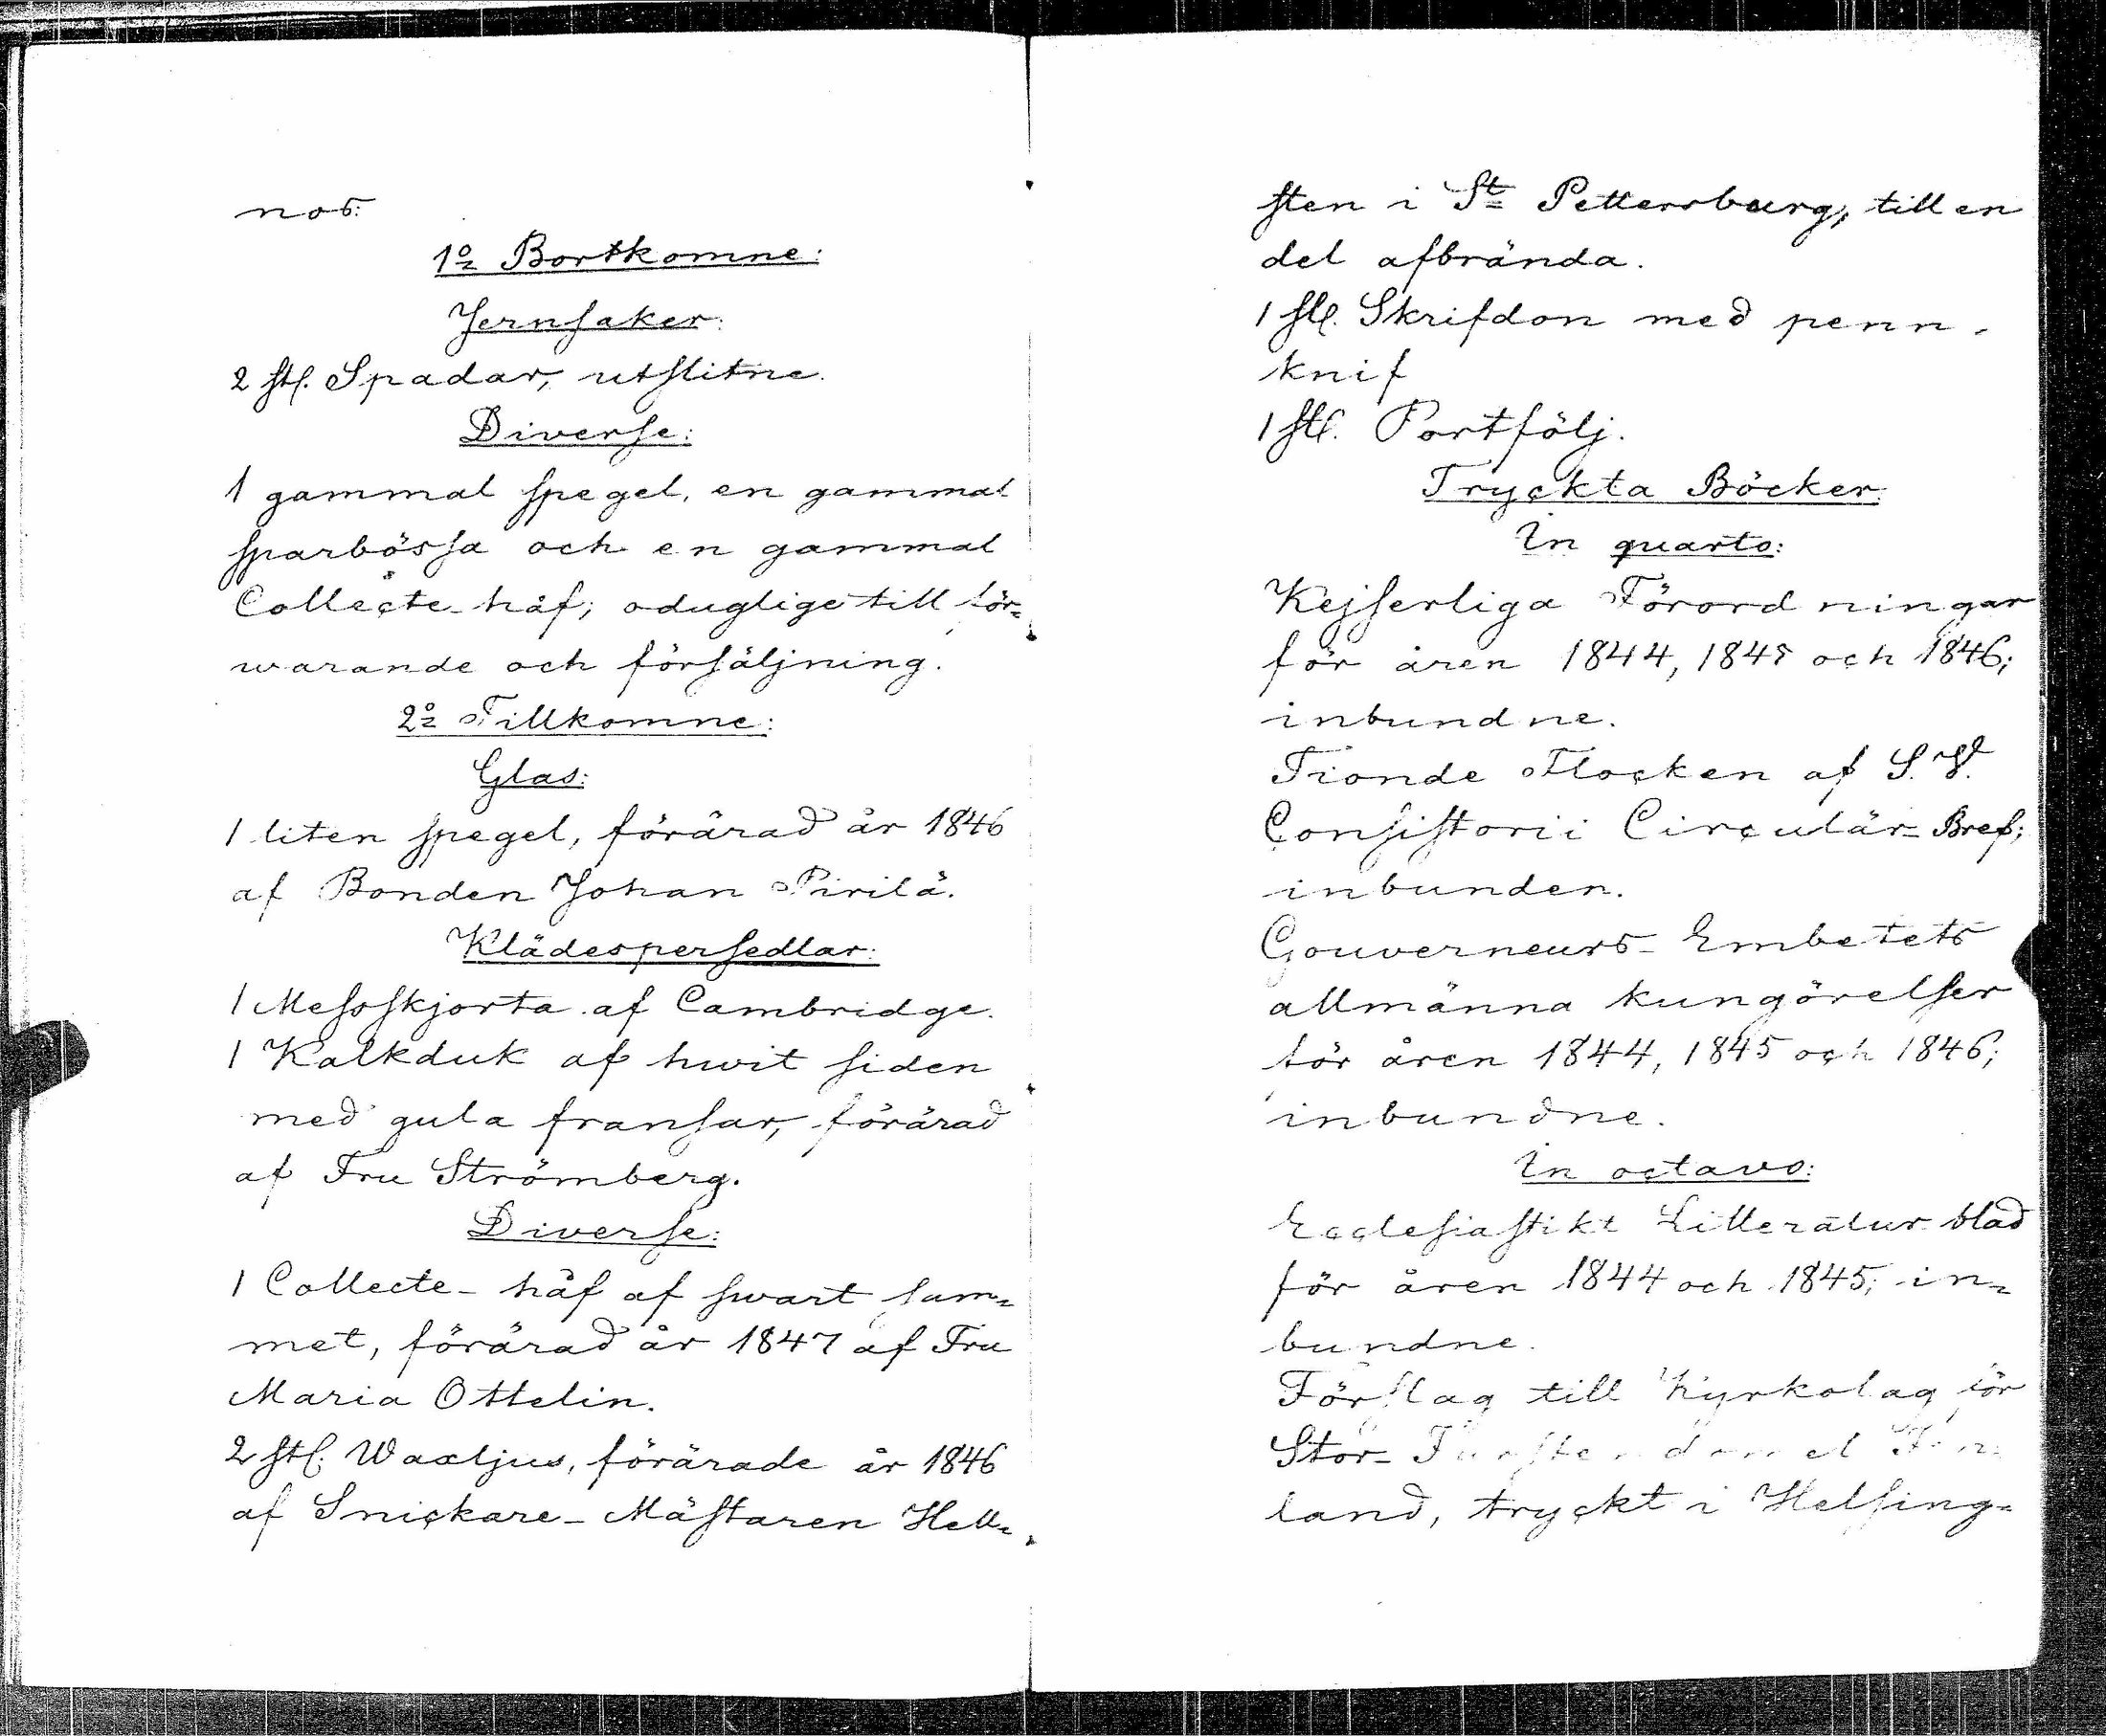 nos:
1º Bortkomne:
Jernsaker:
2 st. Spadar, utslitne.
Diverse:
1 gammal spegel, en gammal
sparbössa och en gammal
Collecte-håf; odugliga till för=
warande och försäljning.
2º Tillkomne:
Glas:
1 liten spegel, förärad år 1846
af Bonden Johan Pirilä.
Klädespersedlar:
1 Messskjorta af Cambridge.
1 Kalkduk af hwit siden
med gula fransar, förärad
af Fru Strömberg.
Diverse:
1 Collecte-håf af swart sam=
met, förärad år 1847 af Fru
Maria Ottelin.
2 st. Waxljus, förärade år 1846
af Snickare-Mästaren Hell=
sten i St Pettersburg, till en
del afbrända.
1 st. Skrifdon med penn-
knif
1 st. Portfölj.
Tryckta Böcker.
In quarto:
Kejserliga Förordningar
för åren 1844, 1845 och 1846;
inbundne.
Tionde Flocken af S. W.
Consistorii Circulär-Bref;
inbunden.
Gouverneurs-Embetets
allmänna kungörelser
för åren 1844, 1845 och 1846;
inbundne.
In octavo:
Ecclesiastikt Litteratur blad
för åren 1844 och 1845; in=
bundne.
Förslag till Kyrkolag för
Stor-Furstendömet Fin=
land, tryckt i Helsing=